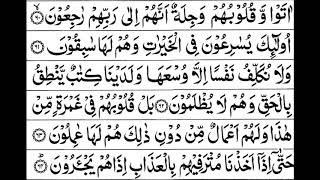 اٰتَوْا وَّ قُلُوْبُهُمْ وَجِلَةٌ اَنَّهُمْ اِلٰى رَبِّهِمْ رٰجِعُوْنَ ﴿۶۰﴾
اُولٰٓئِكَ يُسٰرِعُوْنَ فِى الْخَيْرٰتِ وَهُمْ لَهَا سٰبِقُوْنَ ﴿۶۱﴾
وَلَا نُكَلِّفُ نَفْسًا اِلَّا وُسْعَهَا وَلَدَيْنَا كِتٰبٌ يَّنْطِقُ
بِالْحَقِّ وَهُمْ لَا يُظْلَمُوْنَ ﴿۶۲﴾ بَلْ قُلُوْبُهُمْ فِىْ غَمْرَةٍ مِّنْ
هٰذَا وَلَهُمْ اَعْمَالٌ مِّنْ دُوْنِ ذٰلِكَ هُمْ لَهَا عٰمِلُوْنَ ﴿۶۳﴾
حَتّٰۤى اِذَاۤ اَخَذْنَا مُتْرَفِيْهِمْ بِالْعَذَابِ اِذَا هُمْ يَجْـَٔرُوْنَ ﴿۶۴﴾